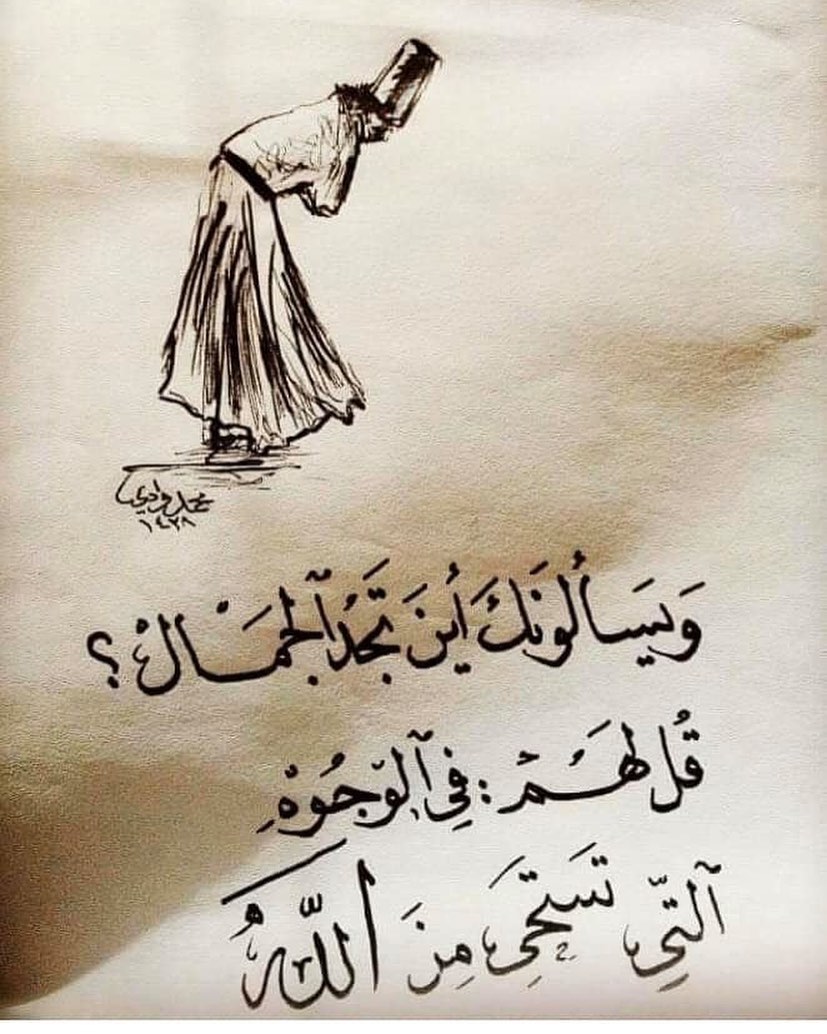 ١٤٣٨
وَيَسألونَكَ أينَ تَجدُ ٱلجمَالْ ؟
قُل لهَُمْ : فِي ٱلوُجُوْهِ
ٱلتِّي تَستَحِي مِنَ اللّهُ